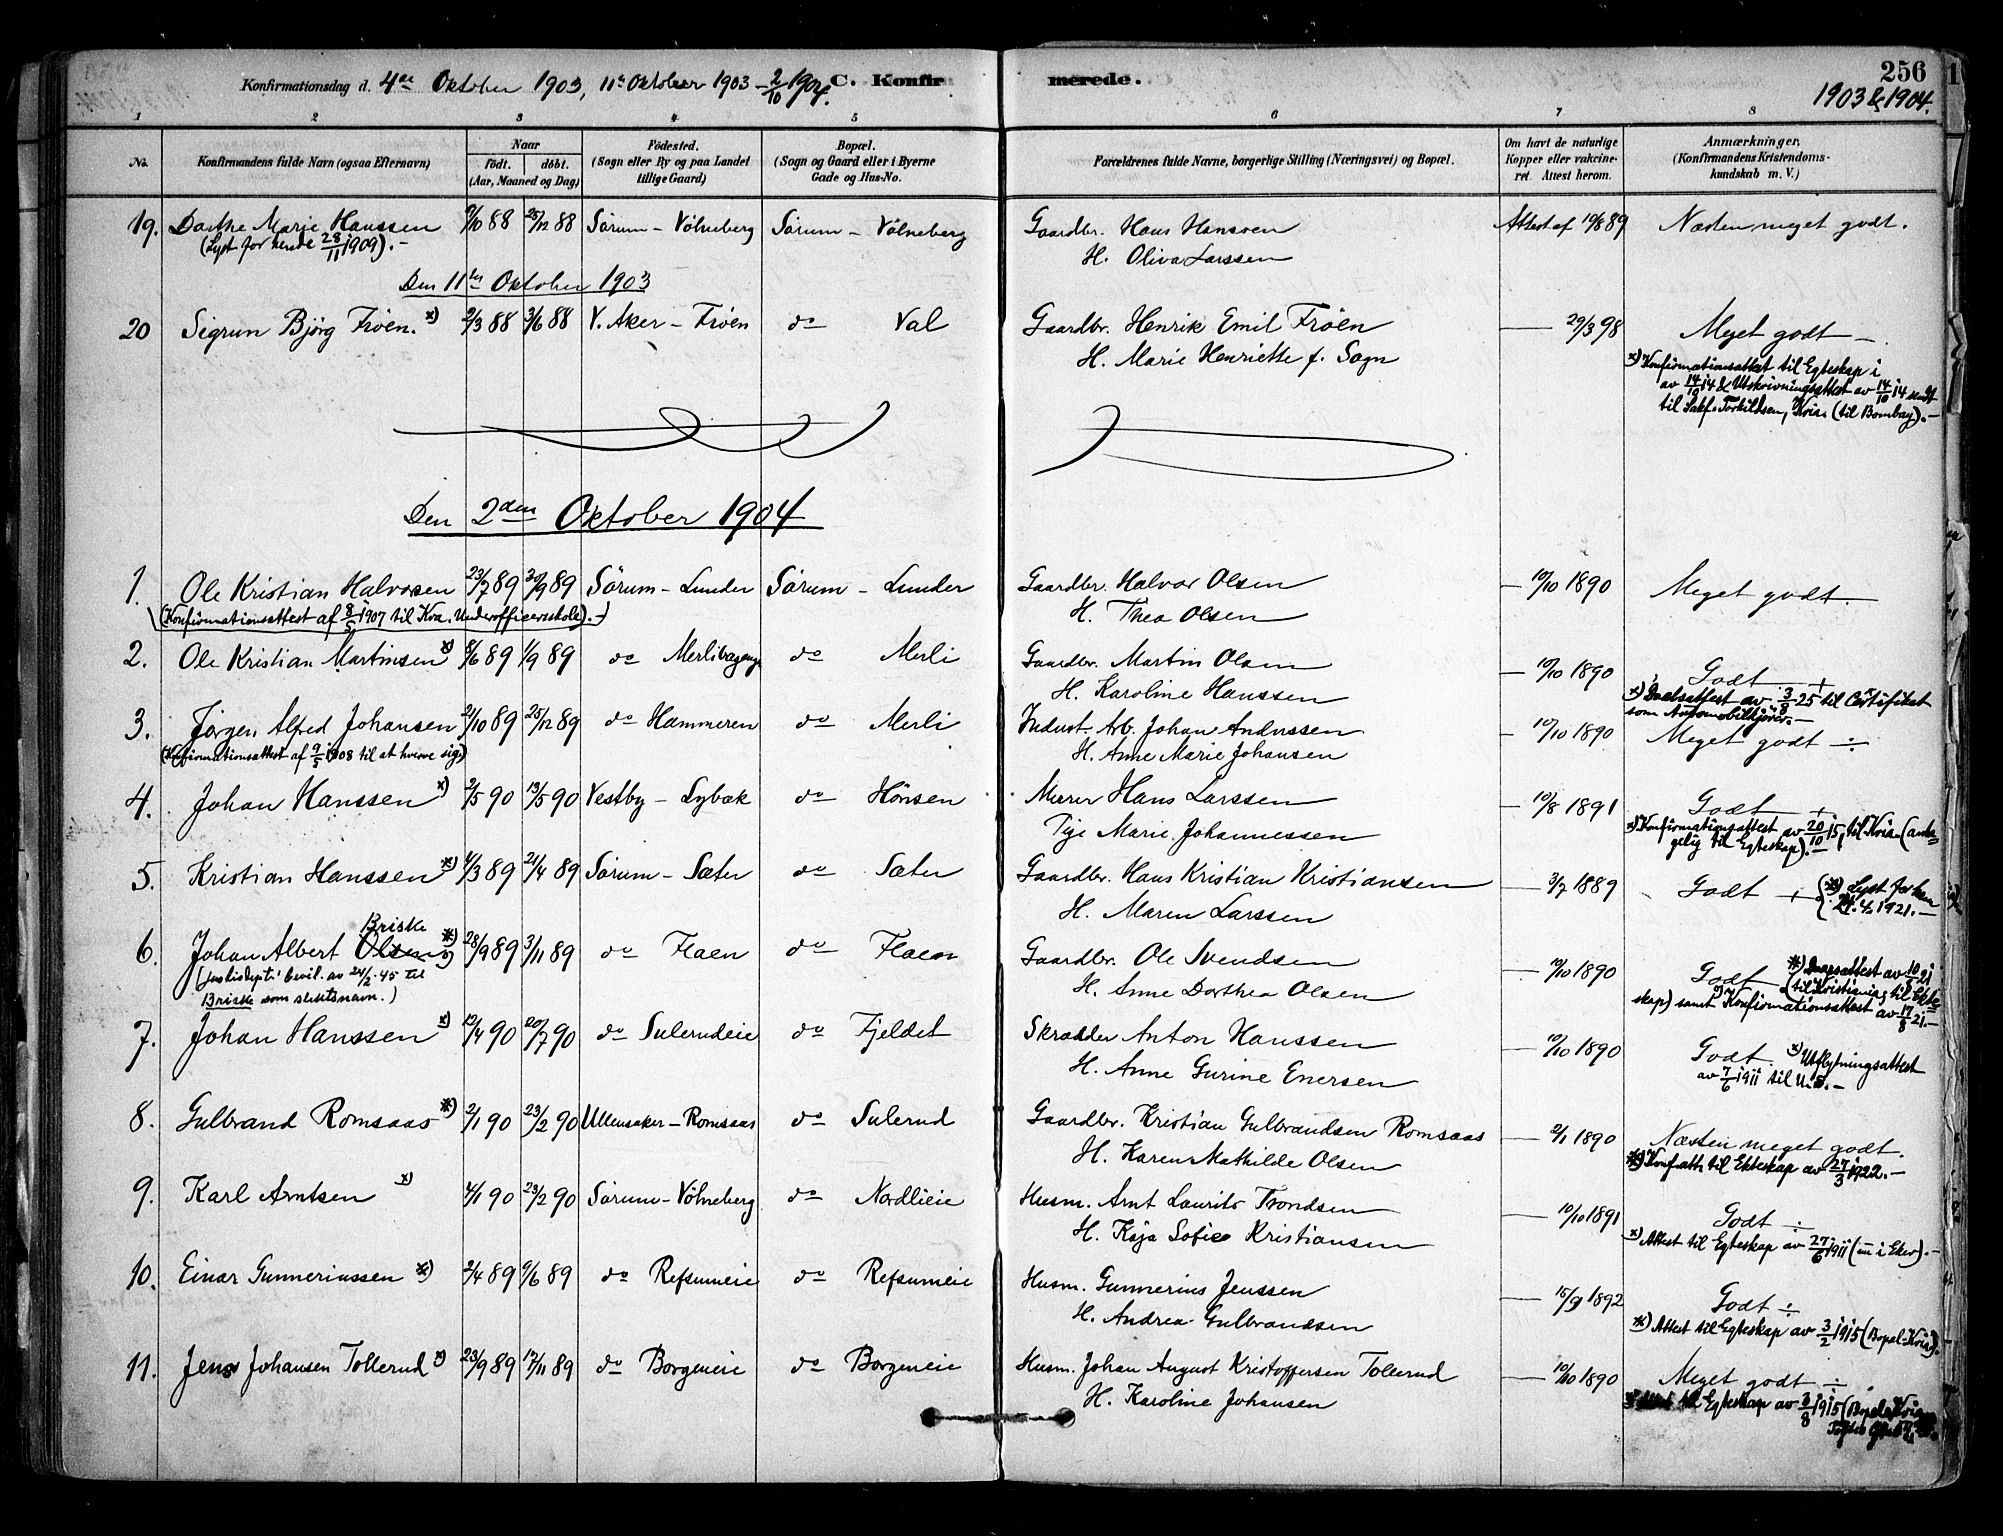 Konfirmationsdag d. 4de Oktober 1903, 11te Oktober 1903 - 2/10 1904. C. Konfirmerede. 256
1903 & 1904.
1 2 3 4 5 6 7 8
No. Konfirmandens fulde Navn (ogsaa Efternavn) Naar født. døbt. (Aar, Maaned og Dag) Fødested. (Sogn eller By og paa Landet tillige Gaard) Bopæl. (Sogn og Gaard eller i Byerne Gade og Hus-No. Forældrenes fulde Navne, borgerlige Stilling (Næringsvei) og Bopæl. Om havt de naturlige Kopper eller vakcineret. Attest herom. Anmærkninger, (Konfirmandens Kristendomskundskab m. V.)
19. Marie Hanssen 9/10 88 26/12 88 Sørum - Vølneberg Sørum - Vølneberg Gaardbr. Hans Hansen Attest af 19/8 89 Næsten meget godt.
(Lyst for hende 28/11 1909). - H. Oliva Larssen
Den 11te Oktober 1903
20 Sigrun Bjørg Frøen. x) 2/3 88 3/6 88 V. Aker - Frøen do Val Gaardbr. Henrik Emil Frøen — 29/3 98 Meget godt —
H. Marie Henriette f. Sogn x) Konfirmationsattest til Egteskap i
av 14/10 14 & Utskrivningsattest av 14/10 14 sendt
til Sakf. Torkildsen, Kria. (til Bombay). -
Den 2den Oktober 1904
1. Ole Kristian Halvorsen 23/7 89 20/9 89 Sørum - Lunder Sørum - Lunder Gaardbr. Halvor Olsen — 10/10 1890 Meget godt.
(Konfirmationsattest af 8/5 1907 til Kra. Underofficersskole). - H. Thea Olsen
2. Ole Kristian Martinsen x) 8/6 89 1/9 89 do do Merli Gaardbr. Martin Olsen — 10/10 1890 Godt +
H. Karoline Hanssen x) Daabsattest av 3/8 25 til Certifikat
som Automobilkjører. -
3. Jørgen Alfred Johansen 21/10 89 25/12 89 do Hammeren do Merli Indust. Arb. Johan Anderssen — 10/10 1890 Meget godt ÷
(Konfirmationsattest af 9/5 1908 til at hverve sig) H. Anne Marie Johansen
4. Johan Hanssen x) 2/5 90 13/5 90 Vestby - Lybæk do Hønsen Murer Hans Larssen — 10/8 1891 Godt +
Pige Marie Johannessen x) Konfirmationsattest av 20/10 15, til Kria (antagelig til Egteskap). -
5. Kristian Hanssen x) 4/3 89 21/4 89 Sørum - Sæter do Sæter Gaardbr. Hans Kristian Kristiansen — 3/7 1889 Godt + x) Lyst for ham
H. Maren Larssen 1921. -
6. Johan Albert Olsen Briske x) 28/9 89 3/11 89 do Flaen do Flaen Gaardbr. Ole Svendsen — 10/10 1890 Godt x) Daapsattest av 10/8 21
(Justisdept.' bevil. av 24/2.45 til H. Anne Dorthea Olsen (til Kristiania, til Ekteskap) samt Konfirmationsattest av 17/8 21. -
Briske som slektsnavn.)
7. Johan Hanssen x) 10/4 90 20/7 90 do Sulerudeie do Fjeldet Skrædder Anton Hanssen — 10/10 1890 Godt. x) Utflytningsattest
H. Anne Gurine Enersen av 7/6 1911 til U.S. -
8. Gulbrand Romsaas x) 2/1 90 23/2 90 Ullensaker - Romsaas do Sulerud Gaardbr. Kristian Gulbrandsen Romsaas — 2/1 1890 Næsten meget godt.
H. Karen Mathilde Olsen x) Konf. att. til Ekteskap av 27/3 1922. -
9. Karl Arntsen x) 4/1 90 23/2 90 Sørum - Vølneberg do Nordlieie Husm. Arnt Laurits Trondsen — 10/10 1891 Godt ÷
H. Kaja Sofie Kristiansen x) Attest til Egteskap av 27/6 1911 -
10. Einar Gunneriussen x) 2/4 89 9/6 89 do Refsumeie do Refsumeie Husm. Gunnerius Jenssen — 15/9 1892 Godt ÷
H. Andrea Gulbrandsen x) Attest til Egteskap av 3/2 1915 (Bopæl: Kria). -
11. Jens Johansen Tollerud x) 23/9 89 17/11 89 do Borgeneie do Borgeneie Husm. Johan August Kristoffersen Tollerud — 10/10 1890 Meget godt ÷
H. Karoline Johansen til Egteskap av 3/8 1915 (Bopæl: Kria